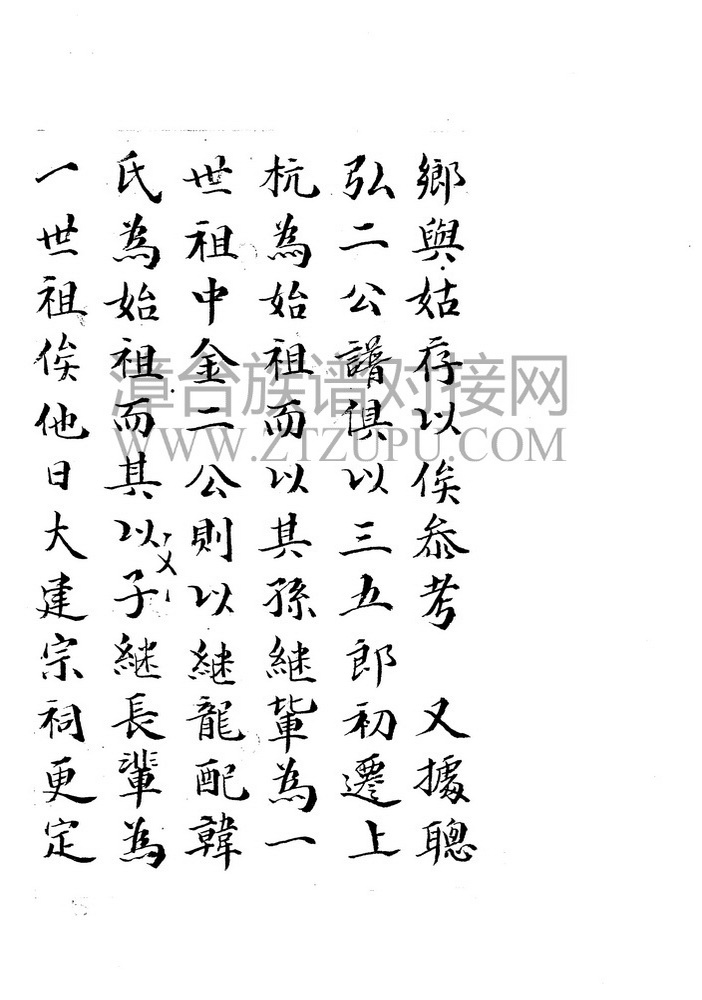 鄉與姑存以俟叅考 又據聰
弘二公譜俱以三五郎初遷上
杭為始祖而以其孫継輩為一
世祖中金二公則以継龍配韓
氏為始祖而其以子継長輩為
一世祖俟他日大建宗祠更定
漳台族谱对接网
WWW.ZTZUPU.COM